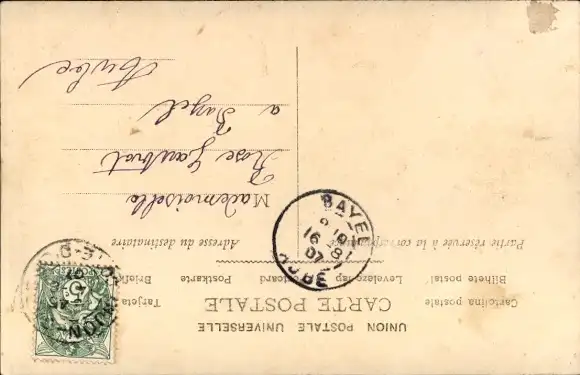 UNION POSTALE UNIVERSELLE
CARTE POSTALE
Cartolina postale
Bilhete postal Levelezo-lap Postkarte Briefk
Tarjeta
Partie réservée à la corresp Adresse du destinataire
Mademoiselle
Rose
a Bayel
Aube
BAYEL
16 8
07
AUBE
5